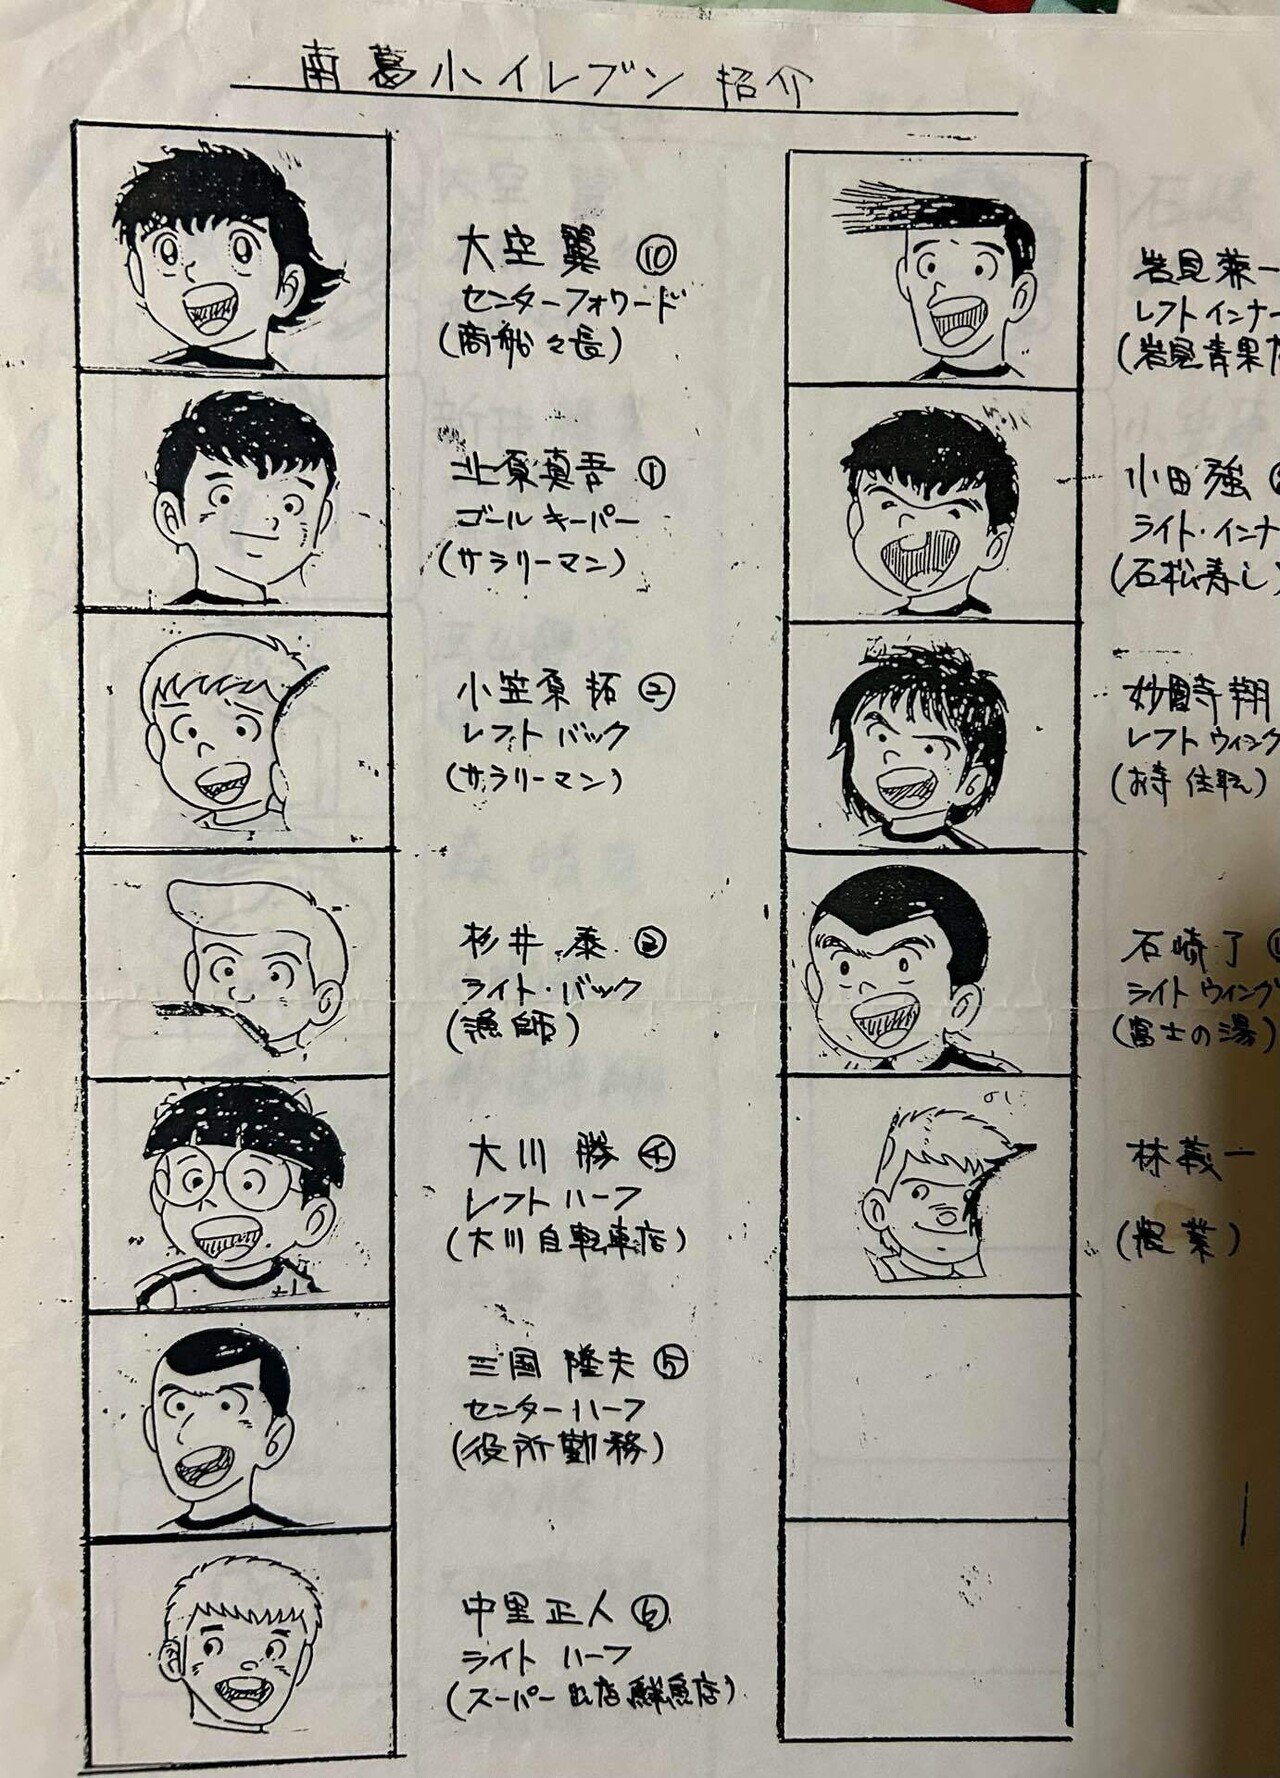 南葛小イレブン 招介
大空翼 ⑩
センターフォワード
(商船々長)
北原真吾 ①
ゴールキーパー
(サラリーマン)
小笠原拓 ②
レフトバック
(サラリーマン)
杉井泰 ③
ライト・バック
(漁師)
大川勝 ④
レフトハーフ
(大川自転車店)
三国隆夫 ⑤
センターハーフ
(役所勤務)
中里正人 ⑥
ライトハーフ
(スーパー出店鮮魚店)
岩見兼一
レフトインナー
(岩見青果
小田強
ライト・インナ
(石松寿し)
妙圓寺翔
レフトウィング
(お寺住職)
石崎了
ライトウィング
(富士の湯)
林義一
(農業)